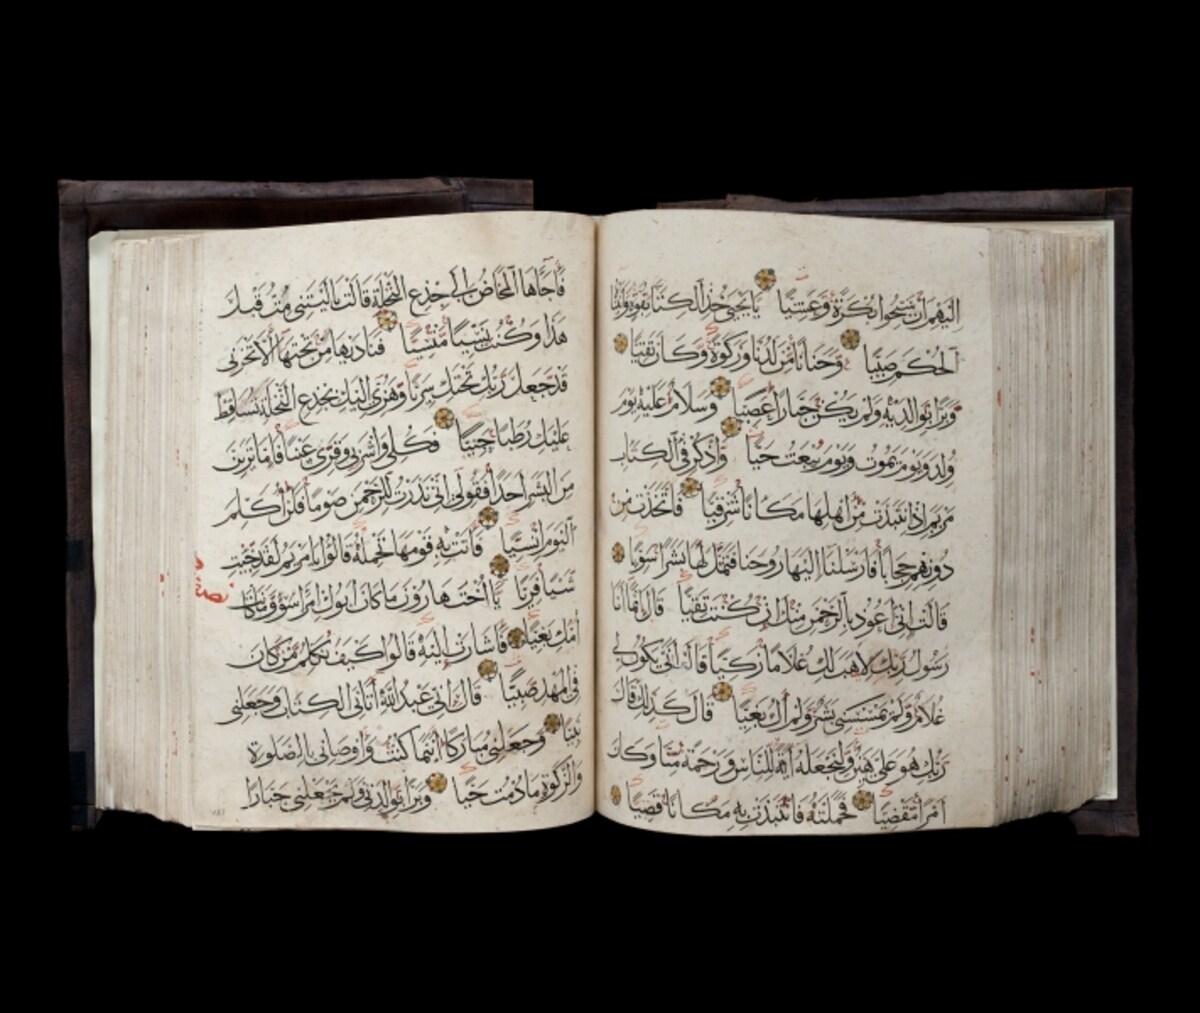 إِلَيْهِمْ أَن سَبِّحُوا بُكْرَةً وَعَشِيًّا يَا يَحْيَى خُذِ الْكِتَابَ بِقُوَّةٍ وَآتَيْنَاهُ
الْحُكْمَ صَبِيًّا وَحَنَانًا مِّن لَّدُنَّا وَزَكَوٰةً وَكَانَ تَقِيًّا
وَبَرًّا بِوَالِدَيْهِ وَلَمْ يَكُن جَبَّارًا عَصِيًّا وَسَلَامٌ عَلَيْهِ يَوْمَ
وُلِدَ وَيَوْمَ يَمُوتُ وَيَوْمَ يُبْعَثُ حَيًّا وَاذْكُرْ فِي الْكِتَابِ
مَرْيَمَ إِذِ انتَبَذَتْ مِنْ أَهْلِهَا مَكَانًا شَرْقِيًّا فَاتَّخَذَتْ مِن
دُونِهِمْ حِجَابًا فَأَرْسَلْنَا إِلَيْهَا رُوحَنَا فَتَمَثَّلَ لَهَا بَشَرًا سَوِيًّا
قَالَتْ إِنِّي أَعُوذُ بِالرَّحْمَنِ مِنكَ إِن كُنتَ تَقِيًّا قَالَ إِنَّمَا أَنَا
رَسُولُ رَبِّكِ لِأَهَبَ لَكِ غُلَامًا زَكِيًّا قَالَتْ أَنَّى يَكُونُ لِي
غُلَامٌ وَلَمْ يَمْسَسْنِي بَشَرٌ وَلَمْ أَكُ بَغِيًّا قَالَ كَذَلِكِ قَالَ
رَبُّكِ هُوَ عَلَيَّ هَيِّنٌ وَلِنَجْعَلَهُ آيَةً لِلنَّاسِ وَرَحْمَةً مِنَّا وَكَانَ
أَمْرًا مَقْضِيًّا فَحَمَلَتْهُ فَانتَبَذَتْ بِهِ مَكَانًا قَصِيًّا
فَأَجَاءَهَا الْمَخَاضُ إِلَى جِذْعِ النَّخْلَةِ قَالَتْ يَا لَيْتَنِي مِتُّ قَبْلَ
هَذَا وَكُنتُ نَسْيًا مَنْسِيًّا فَنَادَيهَا مِنْ تَحْتِهَا أَلَّا تَحْزَنِي
قَدْ جَعَلَ رَبُّكِ تَحْتَكِ سَرِيًّا وَهُزِّي إِلَيْكِ بِجِذْعِ النَّخْلَةِ تُسَاقِطْ
عَلَيْكِ رُطَبًا جَنِيًّا فَكُلِي وَاشْرَبِي وَقَرِّي عَيْنًا فَإِمَّا تَرَيِنَّ
مِنَ الْبَشَرِ أَحَدًا فَقُولِي إِنِّي نَذَرْتُ لِلرَّحْمَنِ صَوْمًا فَلَنْ أُكَلِّمَ
الْيَوْمَ إِنْسِيًّا فَأَتَتْ بِهِ قَوْمَهَا تَحْمِلُهُ قَالُوا يَا مَرْيَمُ لَقَدْ جِئْتِ
شَيْئًا فَرِيًّا يَا أُخْتَ هَارُونَ مَا كَانَ أَبُوكِ امْرَأَ سَوْءٍ وَمَا كَانَتْ
أُمُّكِ بَغِيًّا فَأَشَارَتْ إِلَيْهِ قَالُوا كَيْفَ نُكَلِّمُ مَنْ كَانَ
فِي الْمَهْدِ صَبِيًّا قَالَ إِنِّي عَبْدُ اللَّهِ آتَانِيَ الْكِتَابَ وَجَعَلَنِي
نَبِيًّا وَجَعَلَنِي مُبَارَكًا أَيْنَمَا كُنْتُ وَأَوْصَانِي بِالصَّلَوٰةِ
وَالزَّكَوٰةِ مَا دُمْتُ حَيًّا وَبَرًّا بِوَالِدَتِي وَلَمْ يَجْعَلْنِي جَبَّارًا